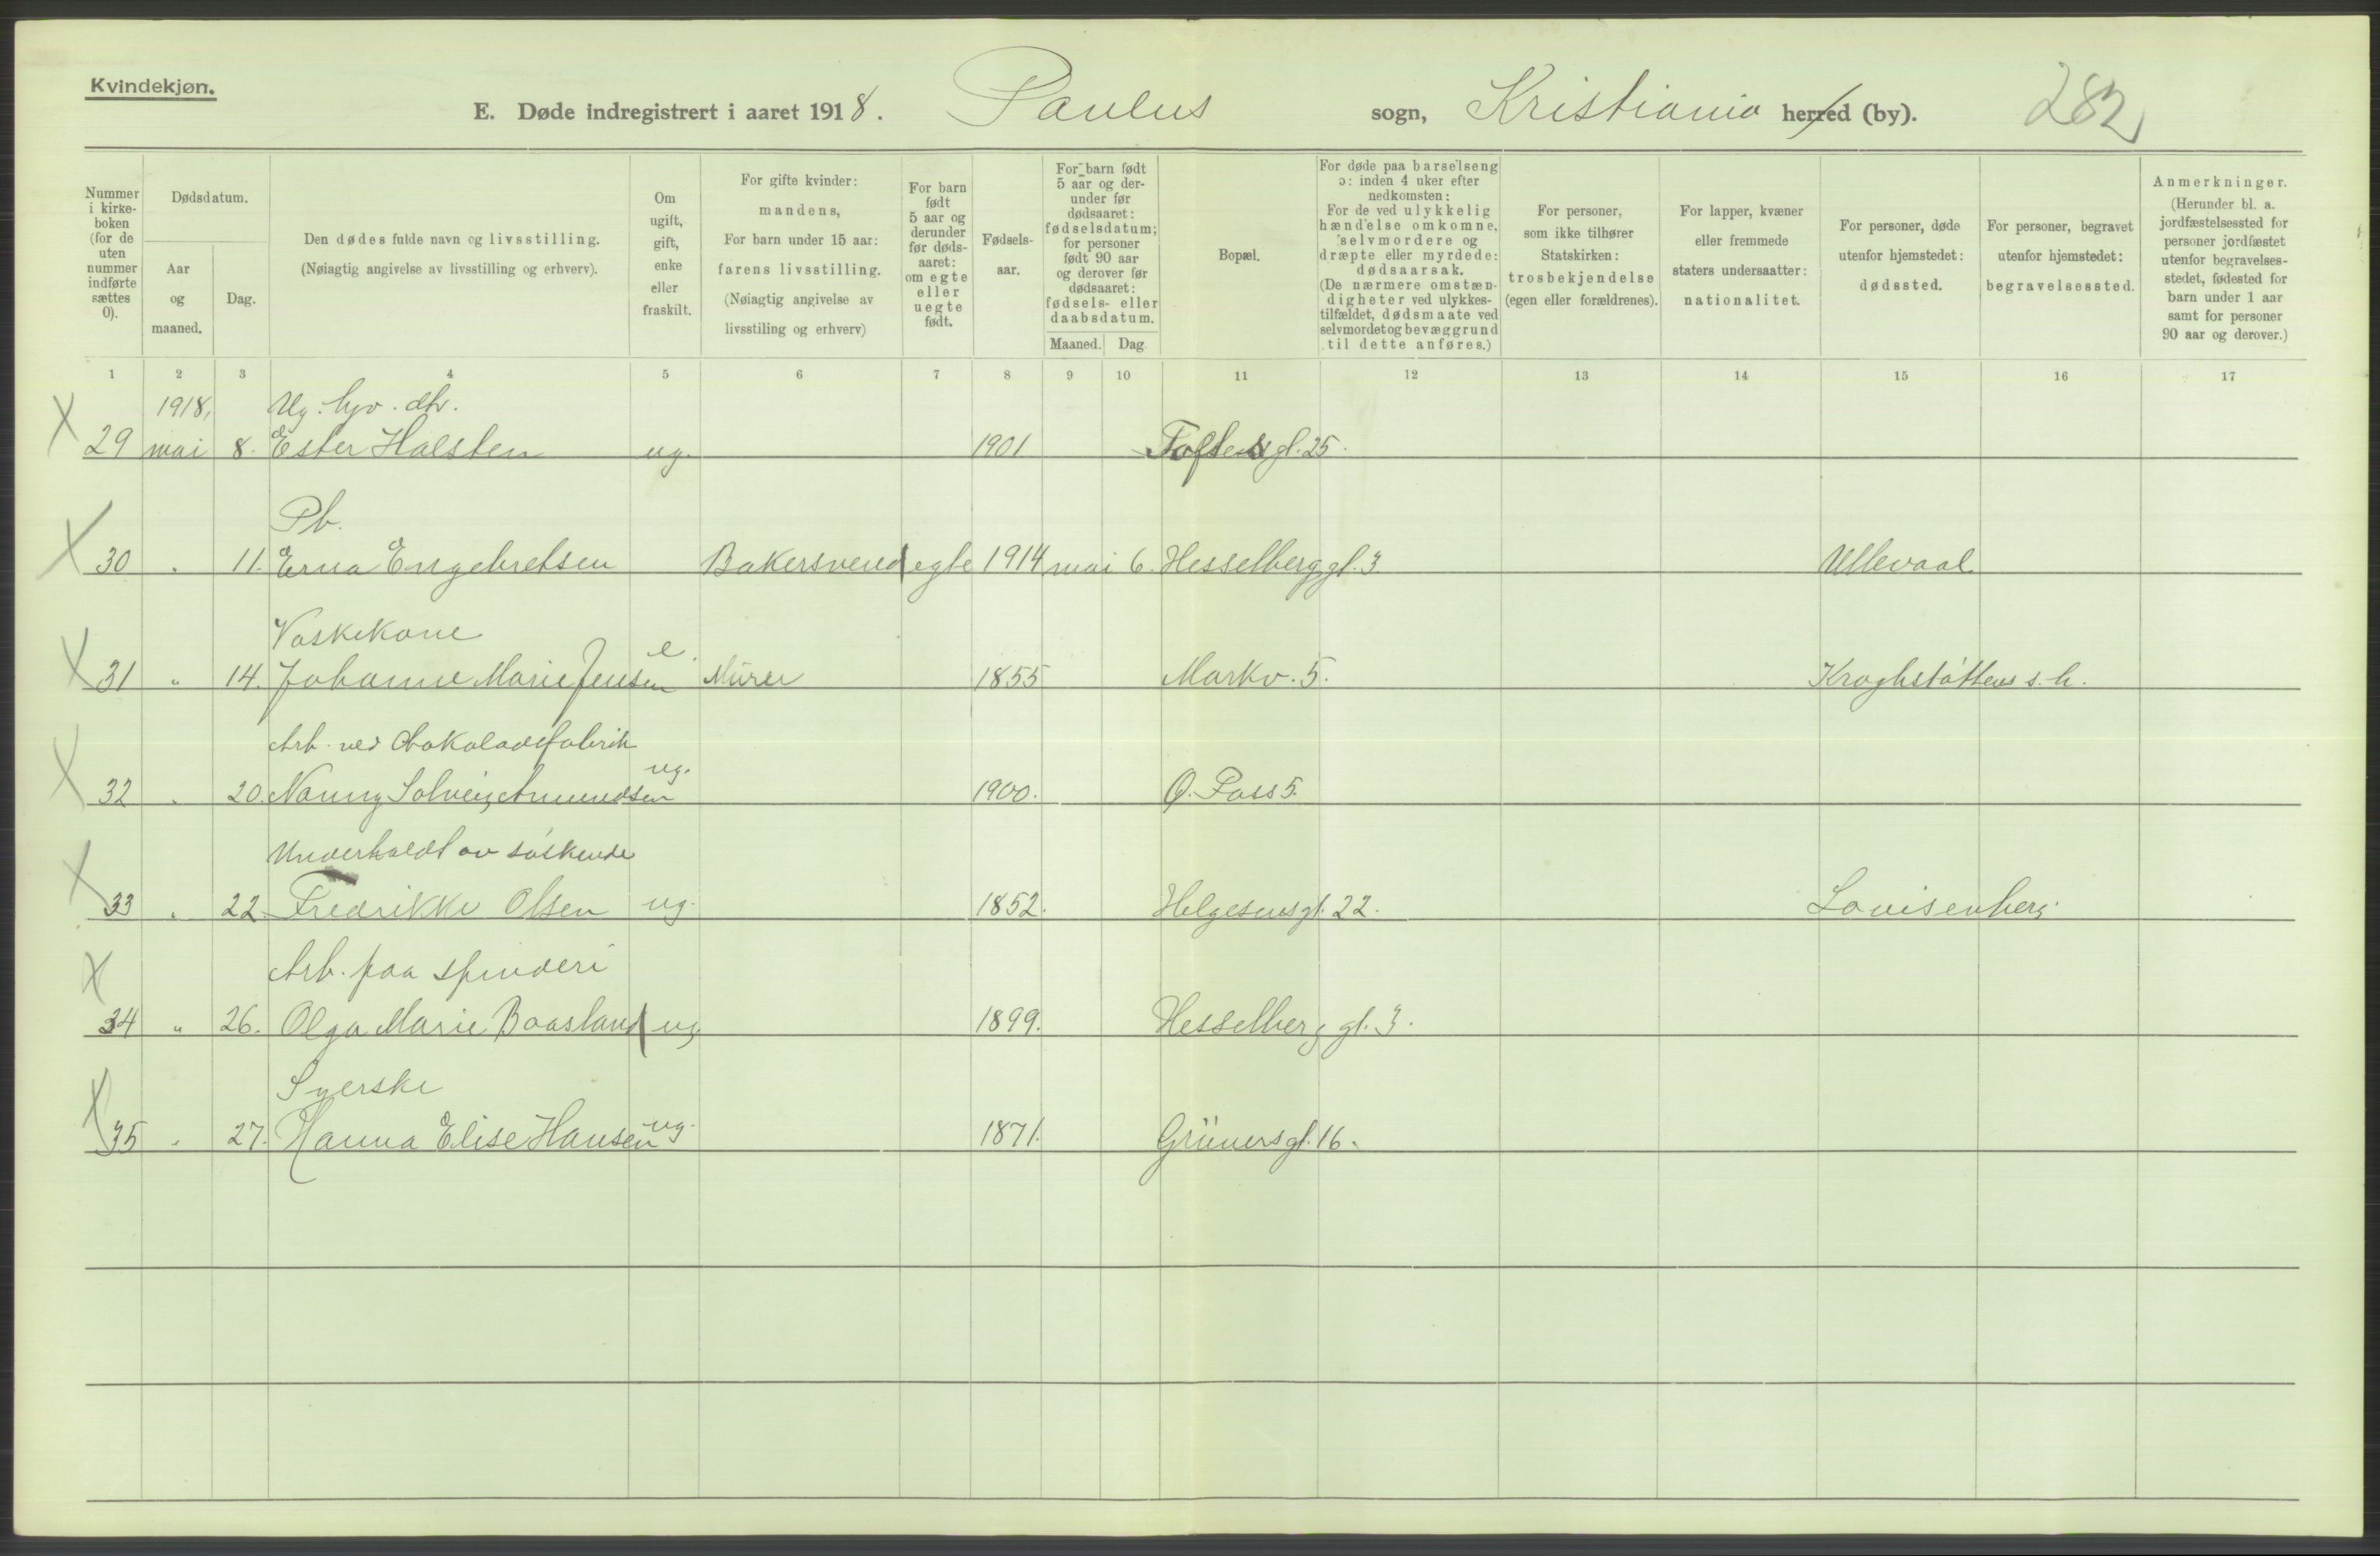 Kvindekjøn.
E. Døde indregistrert i aaret 1918. Paulus sogn, Kristiania herred (by). 282
Nummer i kirkeboken (for de uten nummer indførte sættes 0).
Dødsdatum.
Aar og maaned.
Dag.
Den dødes fulde navn og livsstilling.
(Nøiagtig angivelse av livsstilling og erhverv).
Om ugift, gift, enke eller fraskilt.
For gifte kvinder: mandens, For barn under 15 aar: farens livsstilling. (Nøiagtig angivelse av livsstiling og erhverv)
For barn født 5 aar og derunder før dødsaaret: om egte eller uegte født.
Fødselsaar.
For barn født 5 aar og derunder før dødsaaret: fødselsdatum; for personer født 90 aar og derover før dødsaaret: fødsels- eller daabsdatum.
Maaned. Dag
Bopæl.
For døde paa barselseng ɔ: inden 4 uker efter nedkomsten: For de ved ulykkelig hændelse omkomne, selvmordere og dræpte eller myrdede: dødsaarsak. (De nærmere omstændigheter ved ulykkestilfældet, dødsmaate ved selvmordet og bevæggrund til dette anføres.)
For personer, som ikke tilhører Statskirken: trosbekjendelse (egen eller forældrenes).
For lapper, kvæner eller fremmede staters undersaatter: nationalitet.
For personer, døde utenfor hjemstedet: dødssted.
For personer, begravet utenfor hjemstedet: begravelsessted.
Anmerkninger. (Herunder bl. a. jordfæstelsessted for personer jordfæstet utenfor begravelsesstedet, fødested for barn under 1 aar samt for personer 90 aar og derover.)
1 2 3 4 5 6 7 8 9 10 11 12 13 14 15 16 17
1918, Ug. hjv. dtr.
X 29 mai 8. Ester Halsten ug. 1901 Toftesgt. 25.
Pb.
X 30 " 11. Erna Engebretsen Bakersvend egte 1914 mai 6. Hesselberggt. 3. Ullevaal
Vaskekone
X 31 " 14. Johanne Marie Jensen e. Murer 1855 Markv. 5. Kroghstøttens s.h.
Arb. ved chokoladefabrik
X 32 " 20. Nanny Solveig Amundsen ug. 1900. Ø. Pass 5.
Underholdt av søskende
X 33 " 22 Fredrikke Olsen ug. 1852. Helgesensgt. 22. Lovisenberg
Arb. paa spinderi
X 34 " 26. Olga Marie Baasland ug. 1899. Hesselberg gt. 3.
Syerske
X 35 " 27. Hanna Elise Hansen ug. 1871. Grünersgt. 16.